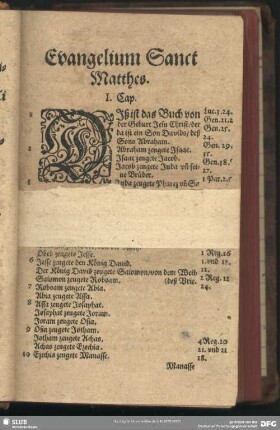 Evangelium Sanct
Matthes.
I. Cap.
1 DIß ist das Buch von
der Geburt Jesu Christ/der
da ist ein Son Davids/deß
Sons Abraham.
2 Abraham zeugete Isaac.
Isaac zeugete Jacob.
Jacob zeugete Juda vñ sei-
ne Brüder.
Juda zeugete Pharez vñ
Luc.1.24.
Gen.21.2.
Gen.25.
24.
Gen. 29.
17.
Obed zeugete Jesse.
6 Jesse zeugete den König David.
Der König David zeugete Salomon/von dem Weib
Salomon zeugete Roboam. (deß Urie.
7 Roboam zeugete Abia.
Abia zeugete Assa.
8 Assa zeugete Josaphat.
Josaphat zeugete Joram.
Joram zeugete Osia.
9 Osia zeugete Jotham.
Jotham zeugete Achas.
Achas zeugete Ezechia.
10 Ezechia zeugete Manasse.
1 Reg.16
1. und 12.
11.
2 Reg. 12
24.
4 Reg.20
21. und 21
18.
Manasse
SLUB